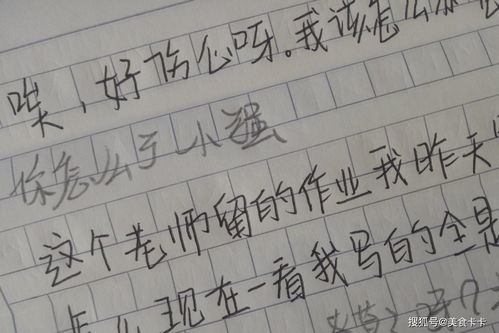 唉，好伤心呀。我该怎么办
你怎么了小强
这个老师留的作业我昨天
怎么现在一看我写的全是
搜狐号@美食卡卡